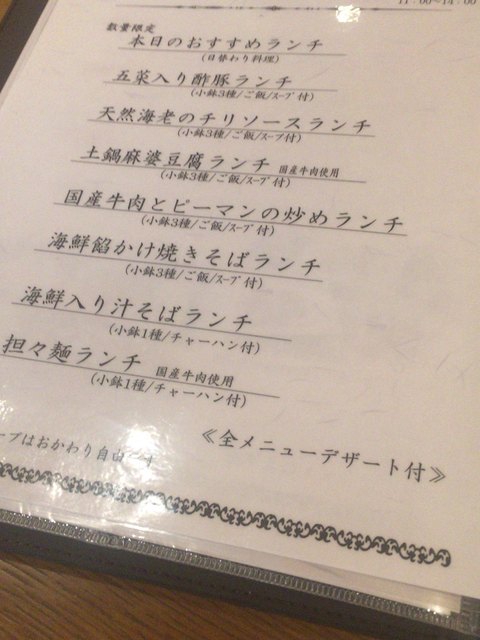 11:00~14:00
数量限定
本日のおすすめランチ
(日替わり料理)
五菜入り酢豚ランチ
(小鉢3種/ご飯/スープ付)
天然海老のチリソースランチ
(小鉢3種/ご飯/スープ付)
土鍋麻婆豆腐ランチ 国産牛肉使用
(小鉢3種/ご飯/スープ付)
国産牛肉とピーマンの炒めランチ
(小鉢3種/ご飯/スープ付)
海鮮餡かけ焼きそばランチ
(小鉢3種/ご飯/スープ付)
海鮮入り汁そばランチ
(小鉢1種/チャーハン付)
担々麺ランチ 国産牛肉使用
(小鉢1種/チャーハン付)
ープはおかわり自由です
≪全メニューデザート付≫